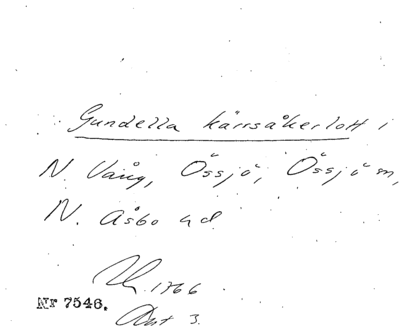 Gundella kärrsåkerlott i
N. Vång, Össjö, Össjö sn,
N. Åsbo hd.
1766
Nr 7546.
Akt 3.